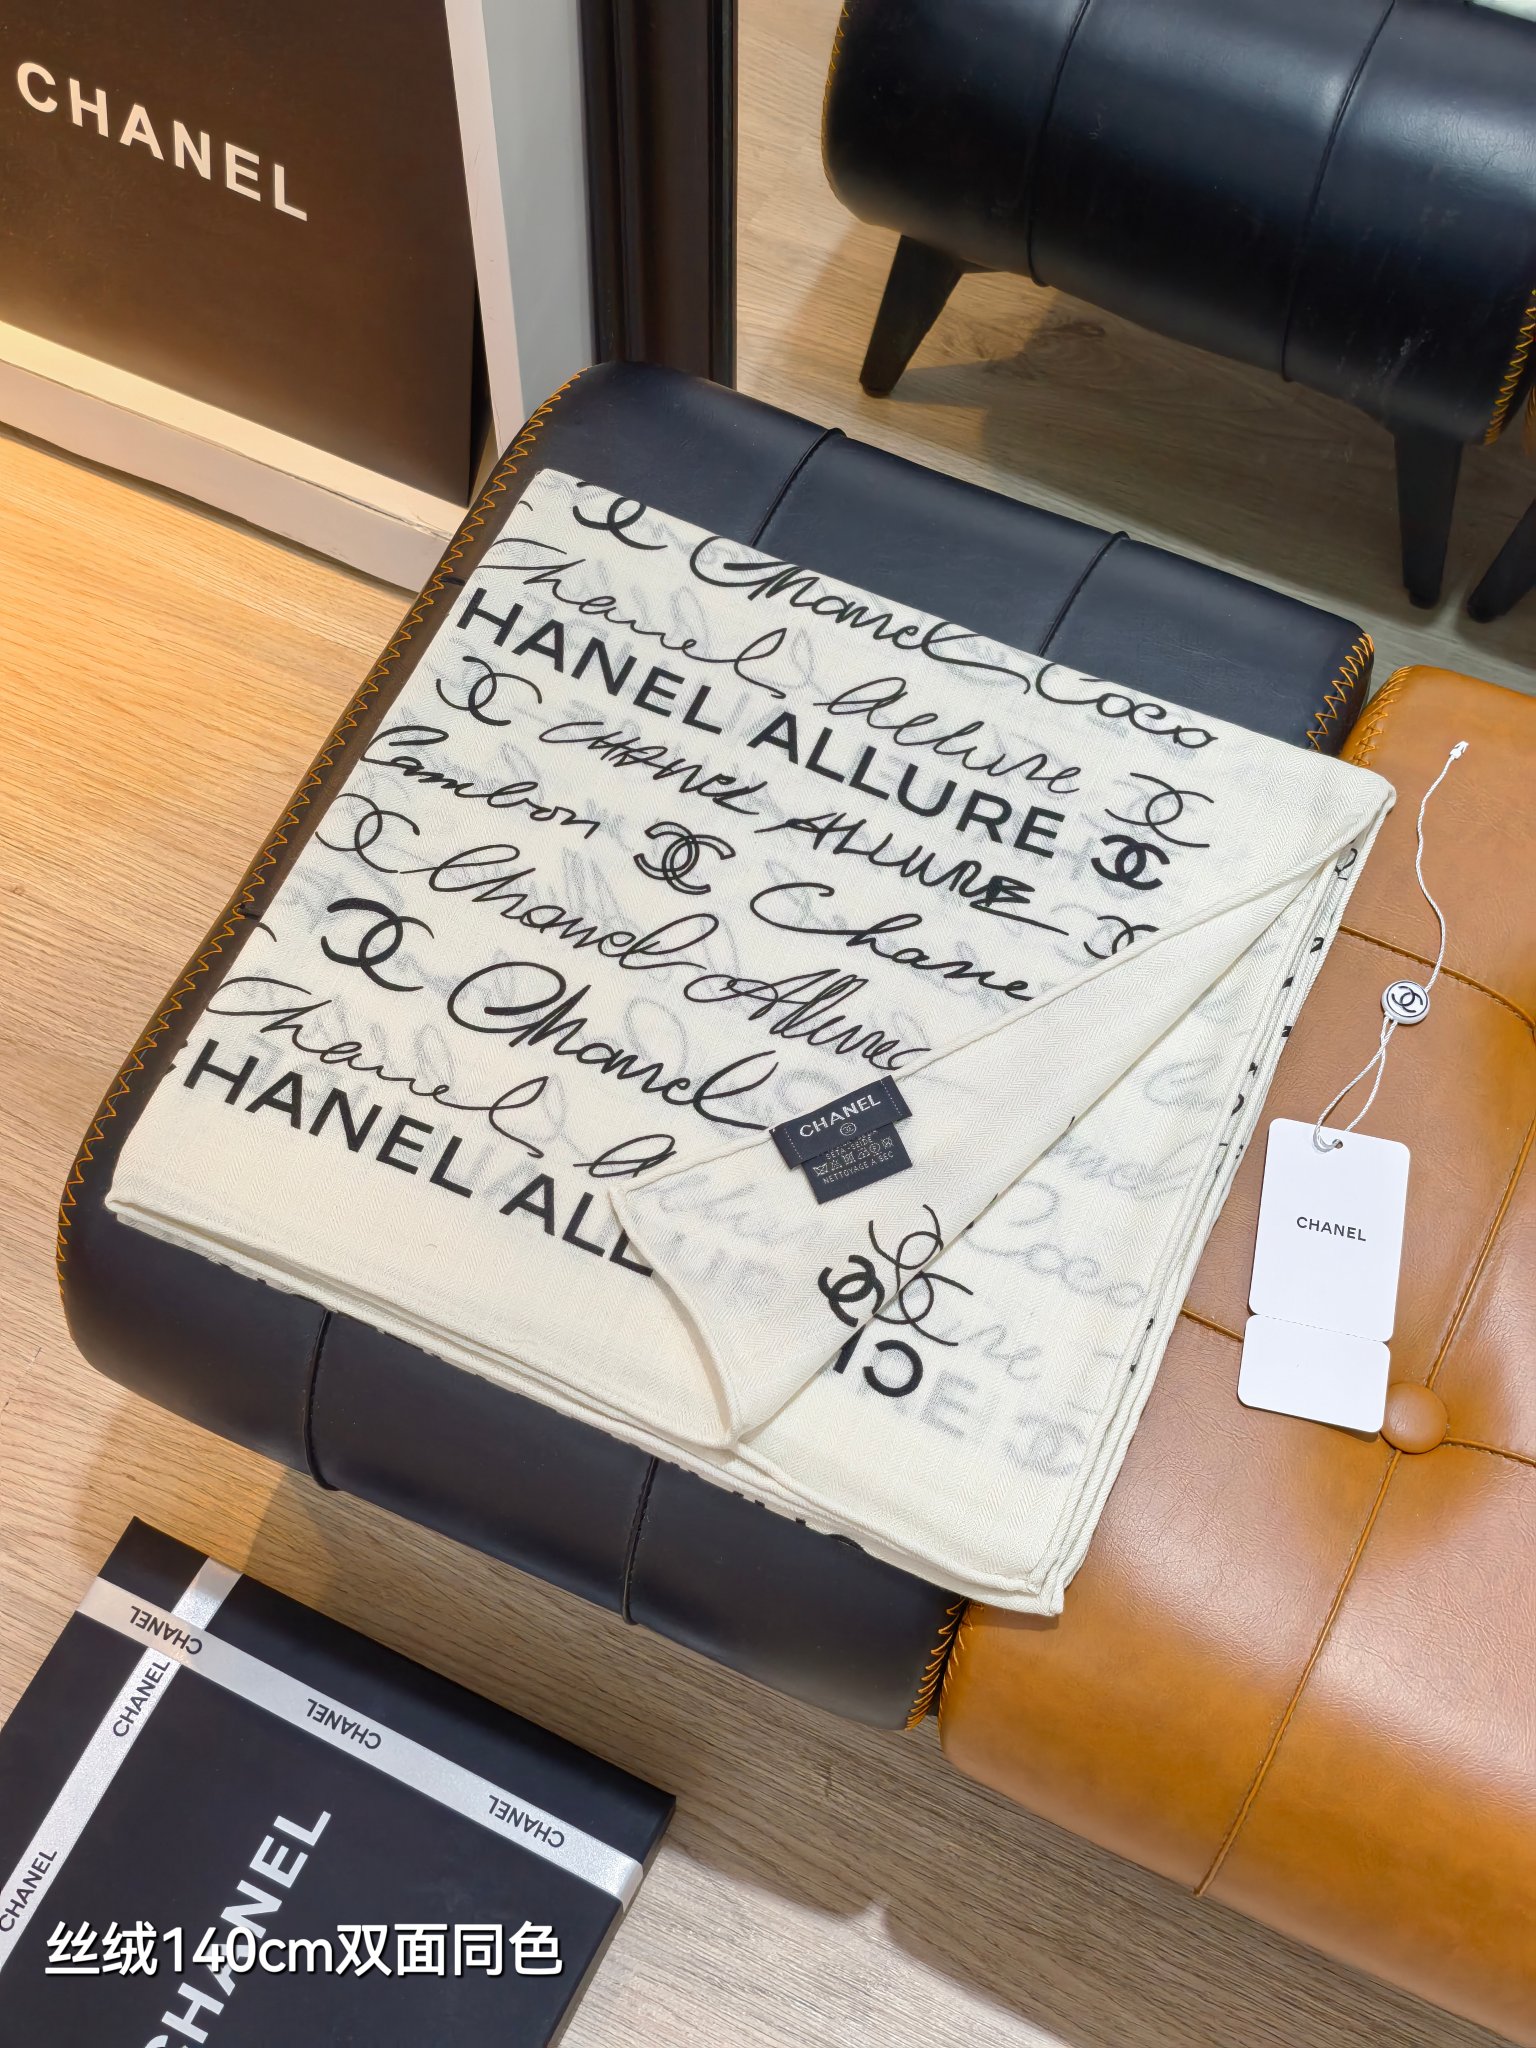 CHANEL
Chanel Coco
Chanel Allure
HANEL ALLURE
CHANEL ALLURE
Cambon
Chane
Chanel Allure
Chanel
Chanel
HANEL ALL
CHANEL
NETTOYAGE A SEC
CHANEL
CHANEL
CHANEL
CHANEL
CHANEL
CHANEL
CHANEL
丝绒140cm双面同色